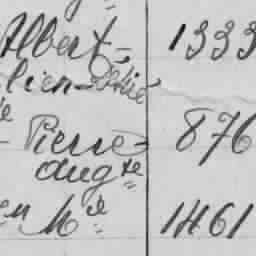 Albert, 1333
lien-
Pierre 876
Aug te
en M ie 1461